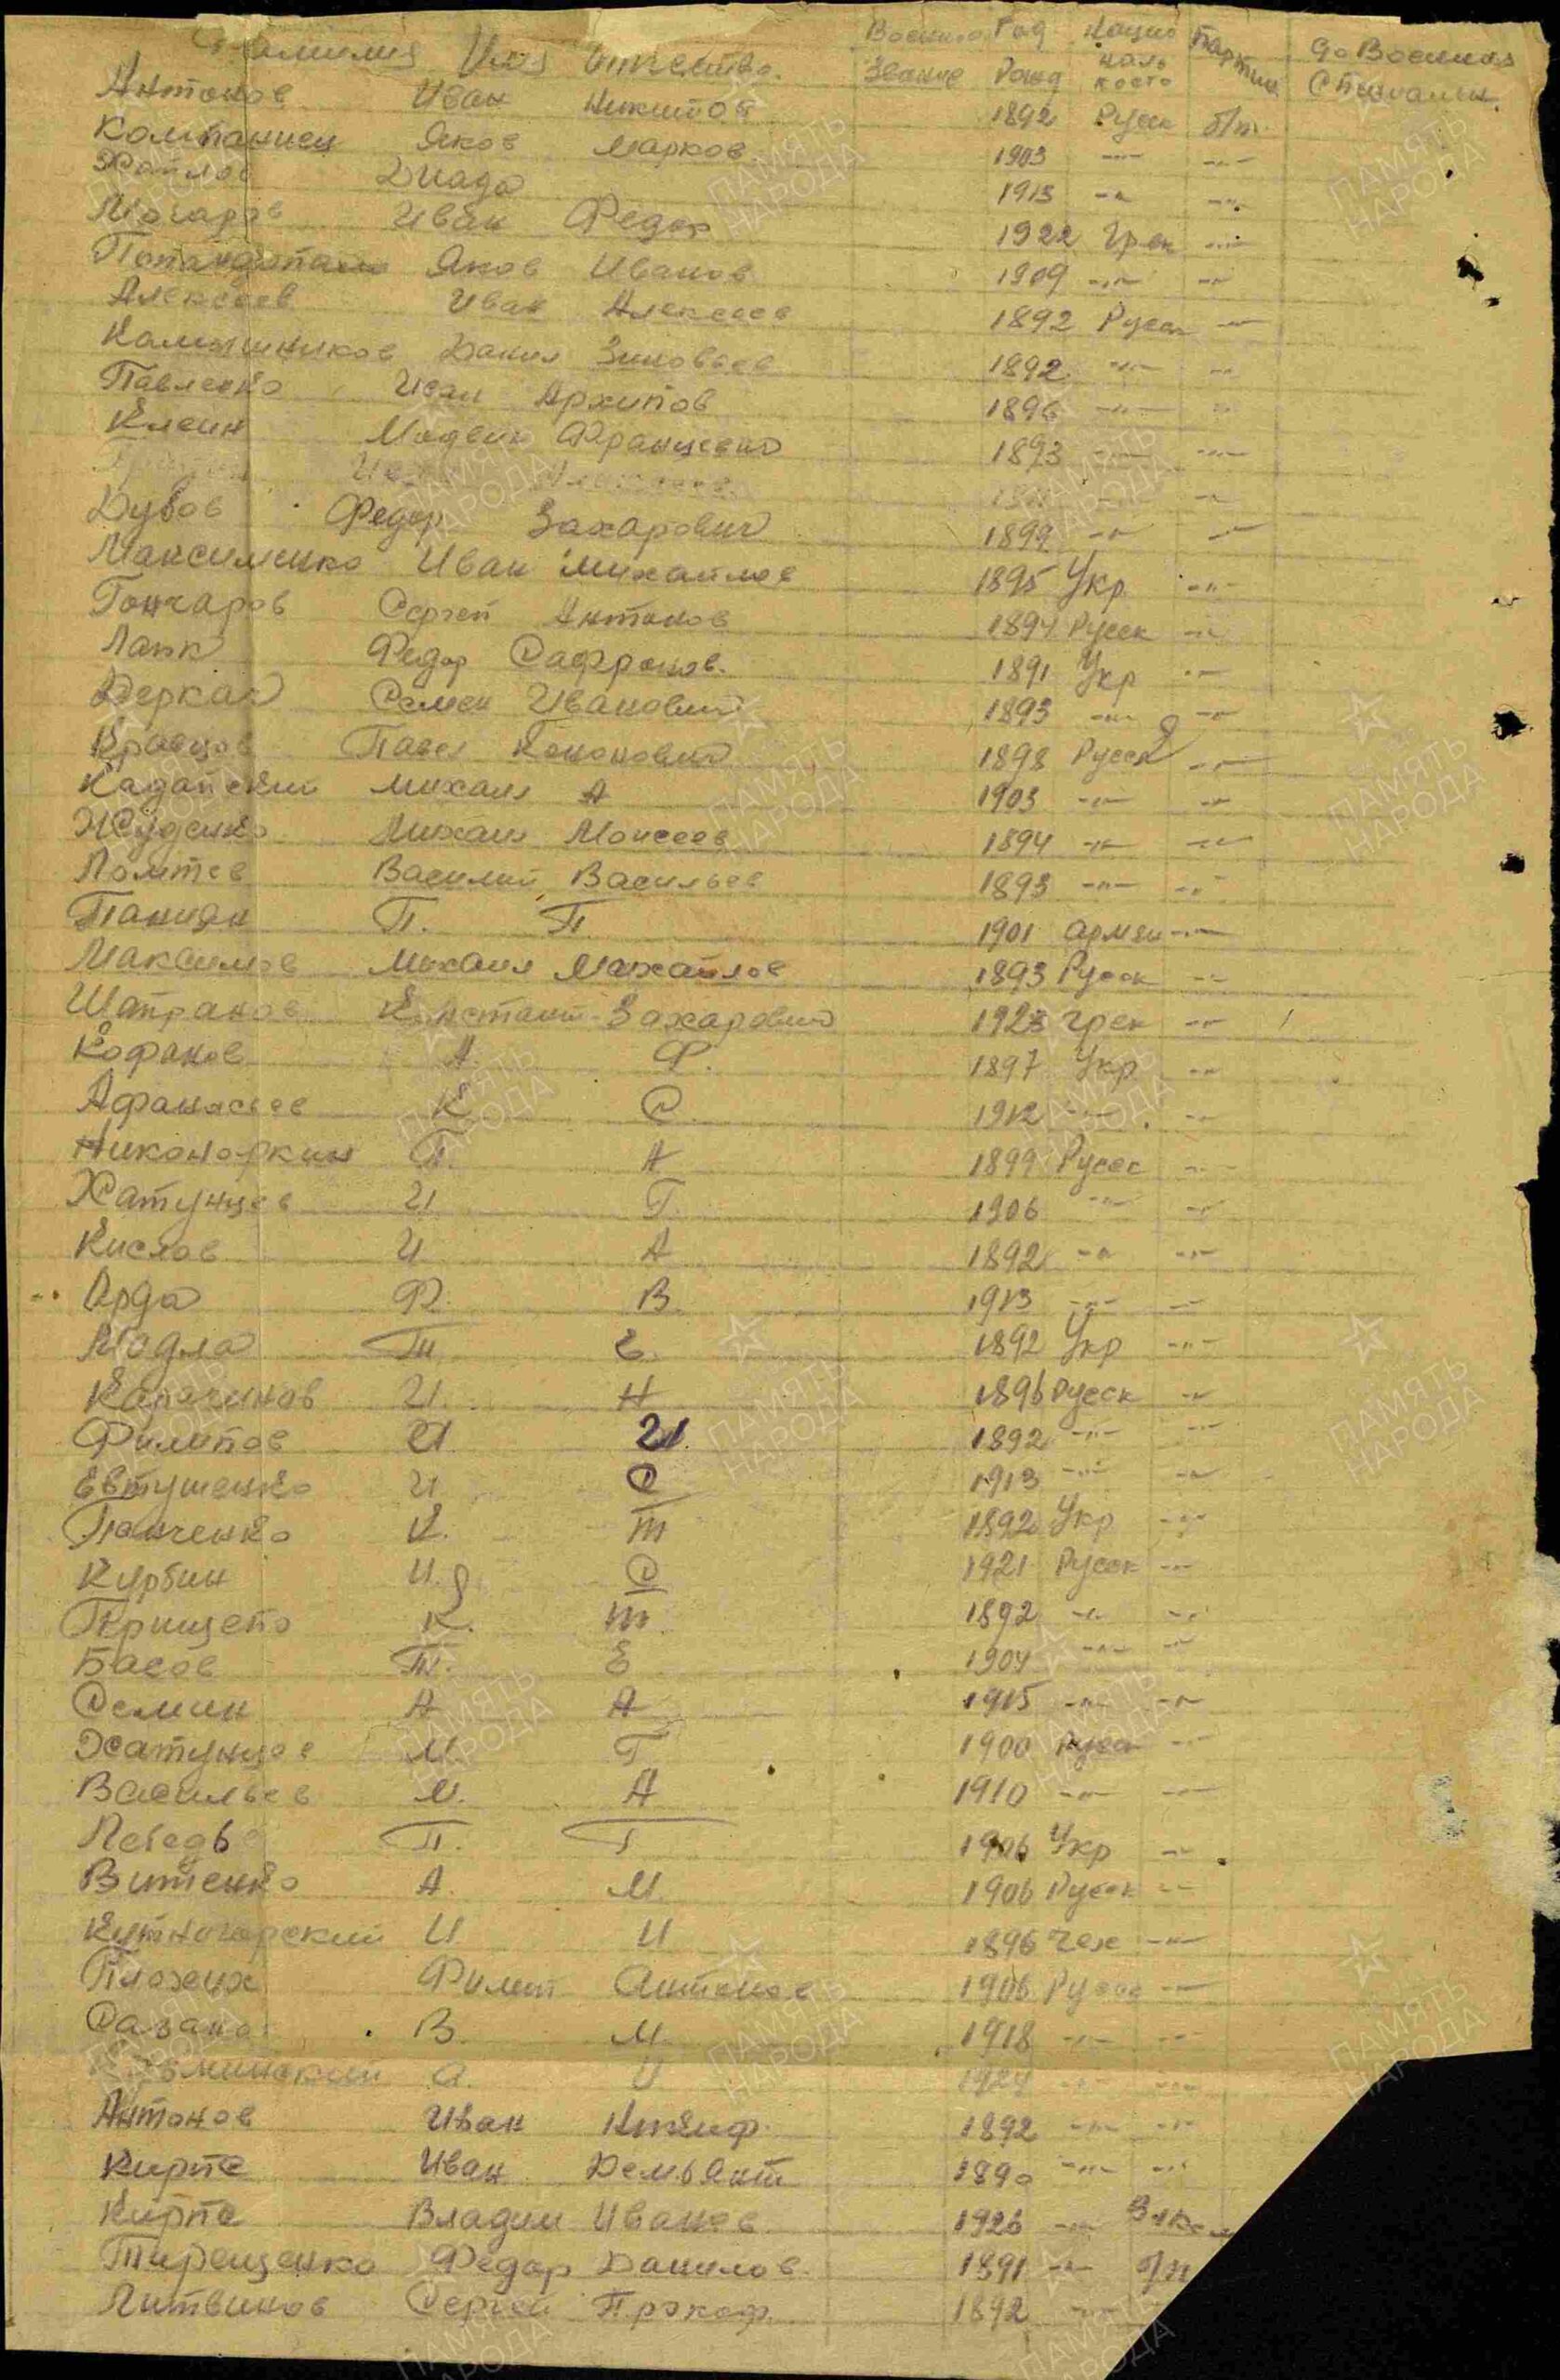 Фамилия Имя Отчество. Военное Звание Год Рожд Нацио наль ность Партия до Военная Специальн.
Антонов Иван Никитов 1892 Русск б/п.
Компаниец Яков Марков 1903 -"- -"-
Диадо 1913 -"- -"-
Иван Федор 1922 Грек -"-
Яков Иванов 1909 -"- -"-
Алексеев Иван Алексеев 1892 Русск -"-
Данил Зиновьев 1892 -"- -"-
Павленко Иван Архипов 1896 -"- -"-
Клейн Францевич 1893 -"- -"-
Дубов Федор Захарович 1899 -"- -"-
Максименко Иван Михайлов 1895 Укр -"-
Гончаров Сергей Антонов 1894 Русск -"-
Федор Сафронов. 1891 Укр -"-
Деркач Семен Иванович 1893 -"- -"-
Кравцов Павел Кононович 1898 Русск -"-
Михаил А 1903 -"- -"-
Жуденко Михаил Моисеев 1894 -"- -"-
Василий Васильев 1893 -"- -"-
Паниян П. П. 1901 Армян -"-
Максимов Михаил Михайлов 1893 Русск -"-
Шапранов Констант. Захарович 1923 Грек -"-
Кофанов А. Ф. 1897 Укр -"-
Афанасьев К С. 1912 -"- -"-
Никоноркин П. А 1899 Русск -"-
Хатунцев И Г. 1906 -"- -"-
Кислов И А 1892 -"- -"-
Орда Ф. В. 1913 -"- -"-
Т Е. 1892 Укр -"-
И. Н 1896 Русск -"-
Филипов И И. 1892 -"- -"-
Евтушенко И С 1913 -"- -"-
Панченко К. Т 1892 Укр -"-
Курбин И. С 1921 Русск -"-
Прищепо К. Т. 1892 -"- -"-
Басов Т. Е 1904 -"- -"-
Семин А А 1915 -"- -"-
Хатунцев М. Г 1900 Русск -"-
Васильев М. А 1910 -"- -"-
Лебедь П. Г 1906 Укр -"-
Витенко А. М. 1906 Русск -"-
Кутногорский И И 1896 Чех -"-
Филип Антонов 1906 Русск -"-
В. М. 1918 -"- -"-
1924 -"- -"-
Антонов Иван 1892 -"- -"-
Кирпе Иван Демьян 1890 -"- -"-
Кирпе Владим Иванов 1926 -"-
Терещенко Федор Данилов. 1891 -"- б/п
Литвинов Сергей Прокоф. 1892 -"-